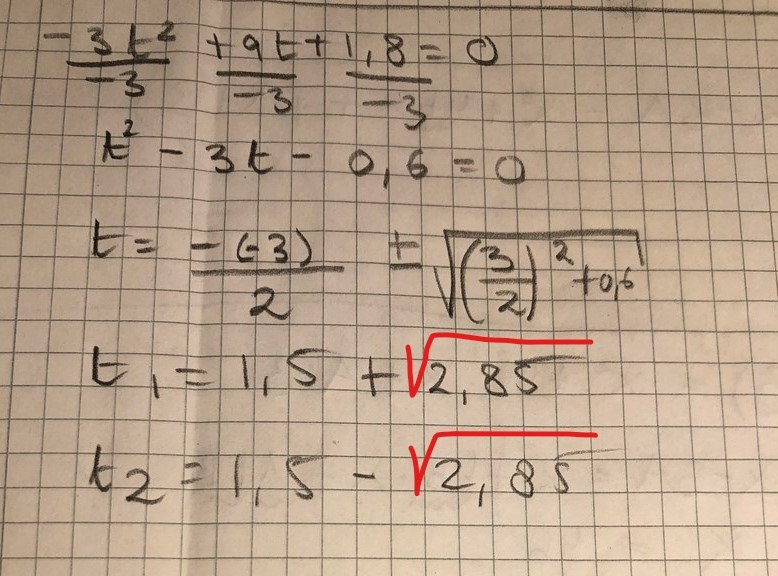 -3t²/-3 +9t/-3 + 1,8/-3 = 0
t² - 3t - 0,6 = 0
t = -(-3)/2 ± √((3/2)² + 0,6)
t₁ = 1,5 + √2,85
t₂ = 1,5 - √2,85